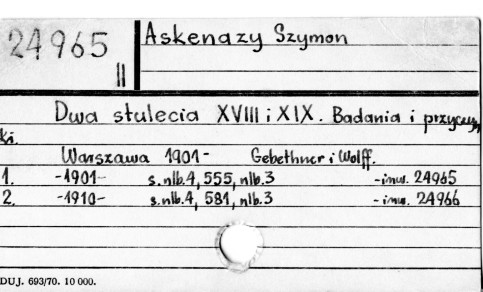 24965
II
Askenazy Szymon
Dwa stulecia XVIII i XIX. Badania i przyczyn
ki.
Warszawa 1901- Gebethner i Wolff.
1. -1901- s.nlb.4, 555, nlb.3 -inw. 24965
2. -1910- s.nlb.4, 581, nlb.3 -inw. 24966
DUJ. 693/70. 10 000.